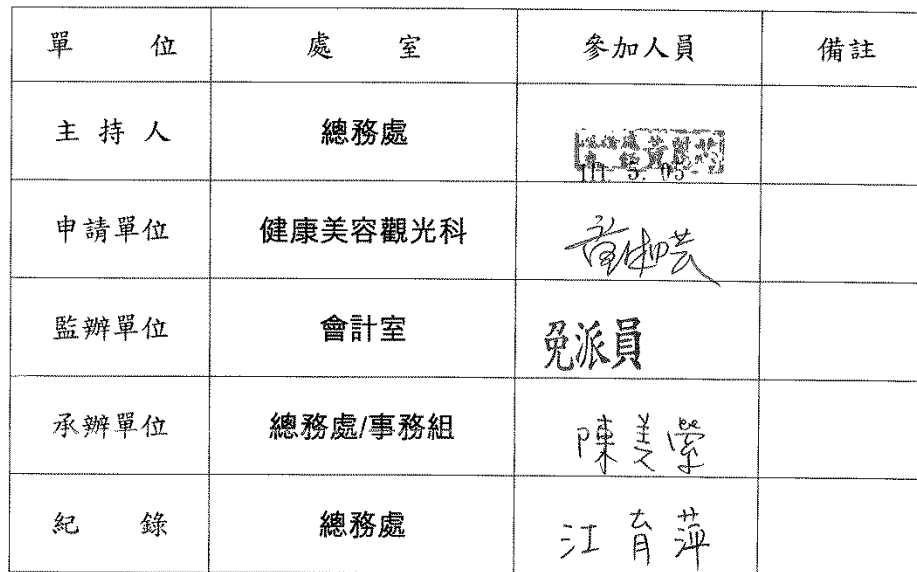 單位 處室 參加人員 備註
主持人 總務處
111. 5. 05
申請單位 健康美容觀光科
監辦單位 會計室 免派員
承辦單位 總務處/事務組 陳美瑩
紀錄 總務處 江育萍